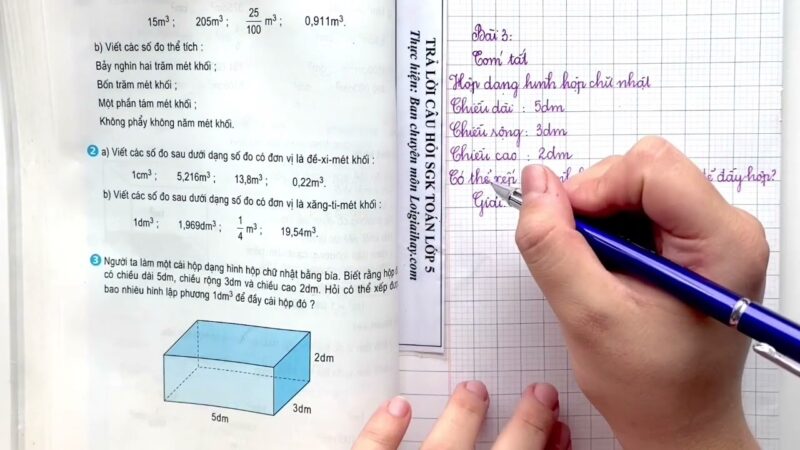 15m³ ; 205m³ ; 25/100 m³ ; 0,911m³.
b) Viết các số đo thể tích :
Bảy nghìn hai trăm mét khối ;
Bốn trăm mét khối ;
Một phần tám mét khối ;
Không phẩy không năm mét khối.
2 a) Viết các số đo sau dưới dạng số đo có đơn vị là đề-xi-mét khối :
1cm³ ; 5,216m³ ; 13,8m³ ; 0,22m³.
b) Viết các số đo sau dưới dạng số đo có đơn vị là xăng-ti-mét khối :
1dm³ ; 1,969dm³ ; 1/4 m³ ; 19,54m³.
3 Người ta làm một cái hộp dạng hình hộp chữ nhật bằng bìa. Biết rằng hộp
có chiều dài 5dm, chiều rộng 3dm và chiều cao 2dm. Hỏi có thể xếp
bao nhiêu hình lập phương 1dm³ để đầy cái hộp đó ?
2dm
3dm
5dm
TRẢ LỜI CÂU HỎI SGK TOÁN LỚP 5
Thực hiện: Ban chuyên môn Loigiaihay.com
Bài 3:
Tóm tắt
Hộp dạng hình hộp chữ nhật
Chiều dài : 5dm
Chiều rộng : 3dm
Chiều cao : 2dm
Có thể xếp để đầy hộp?
Giải: